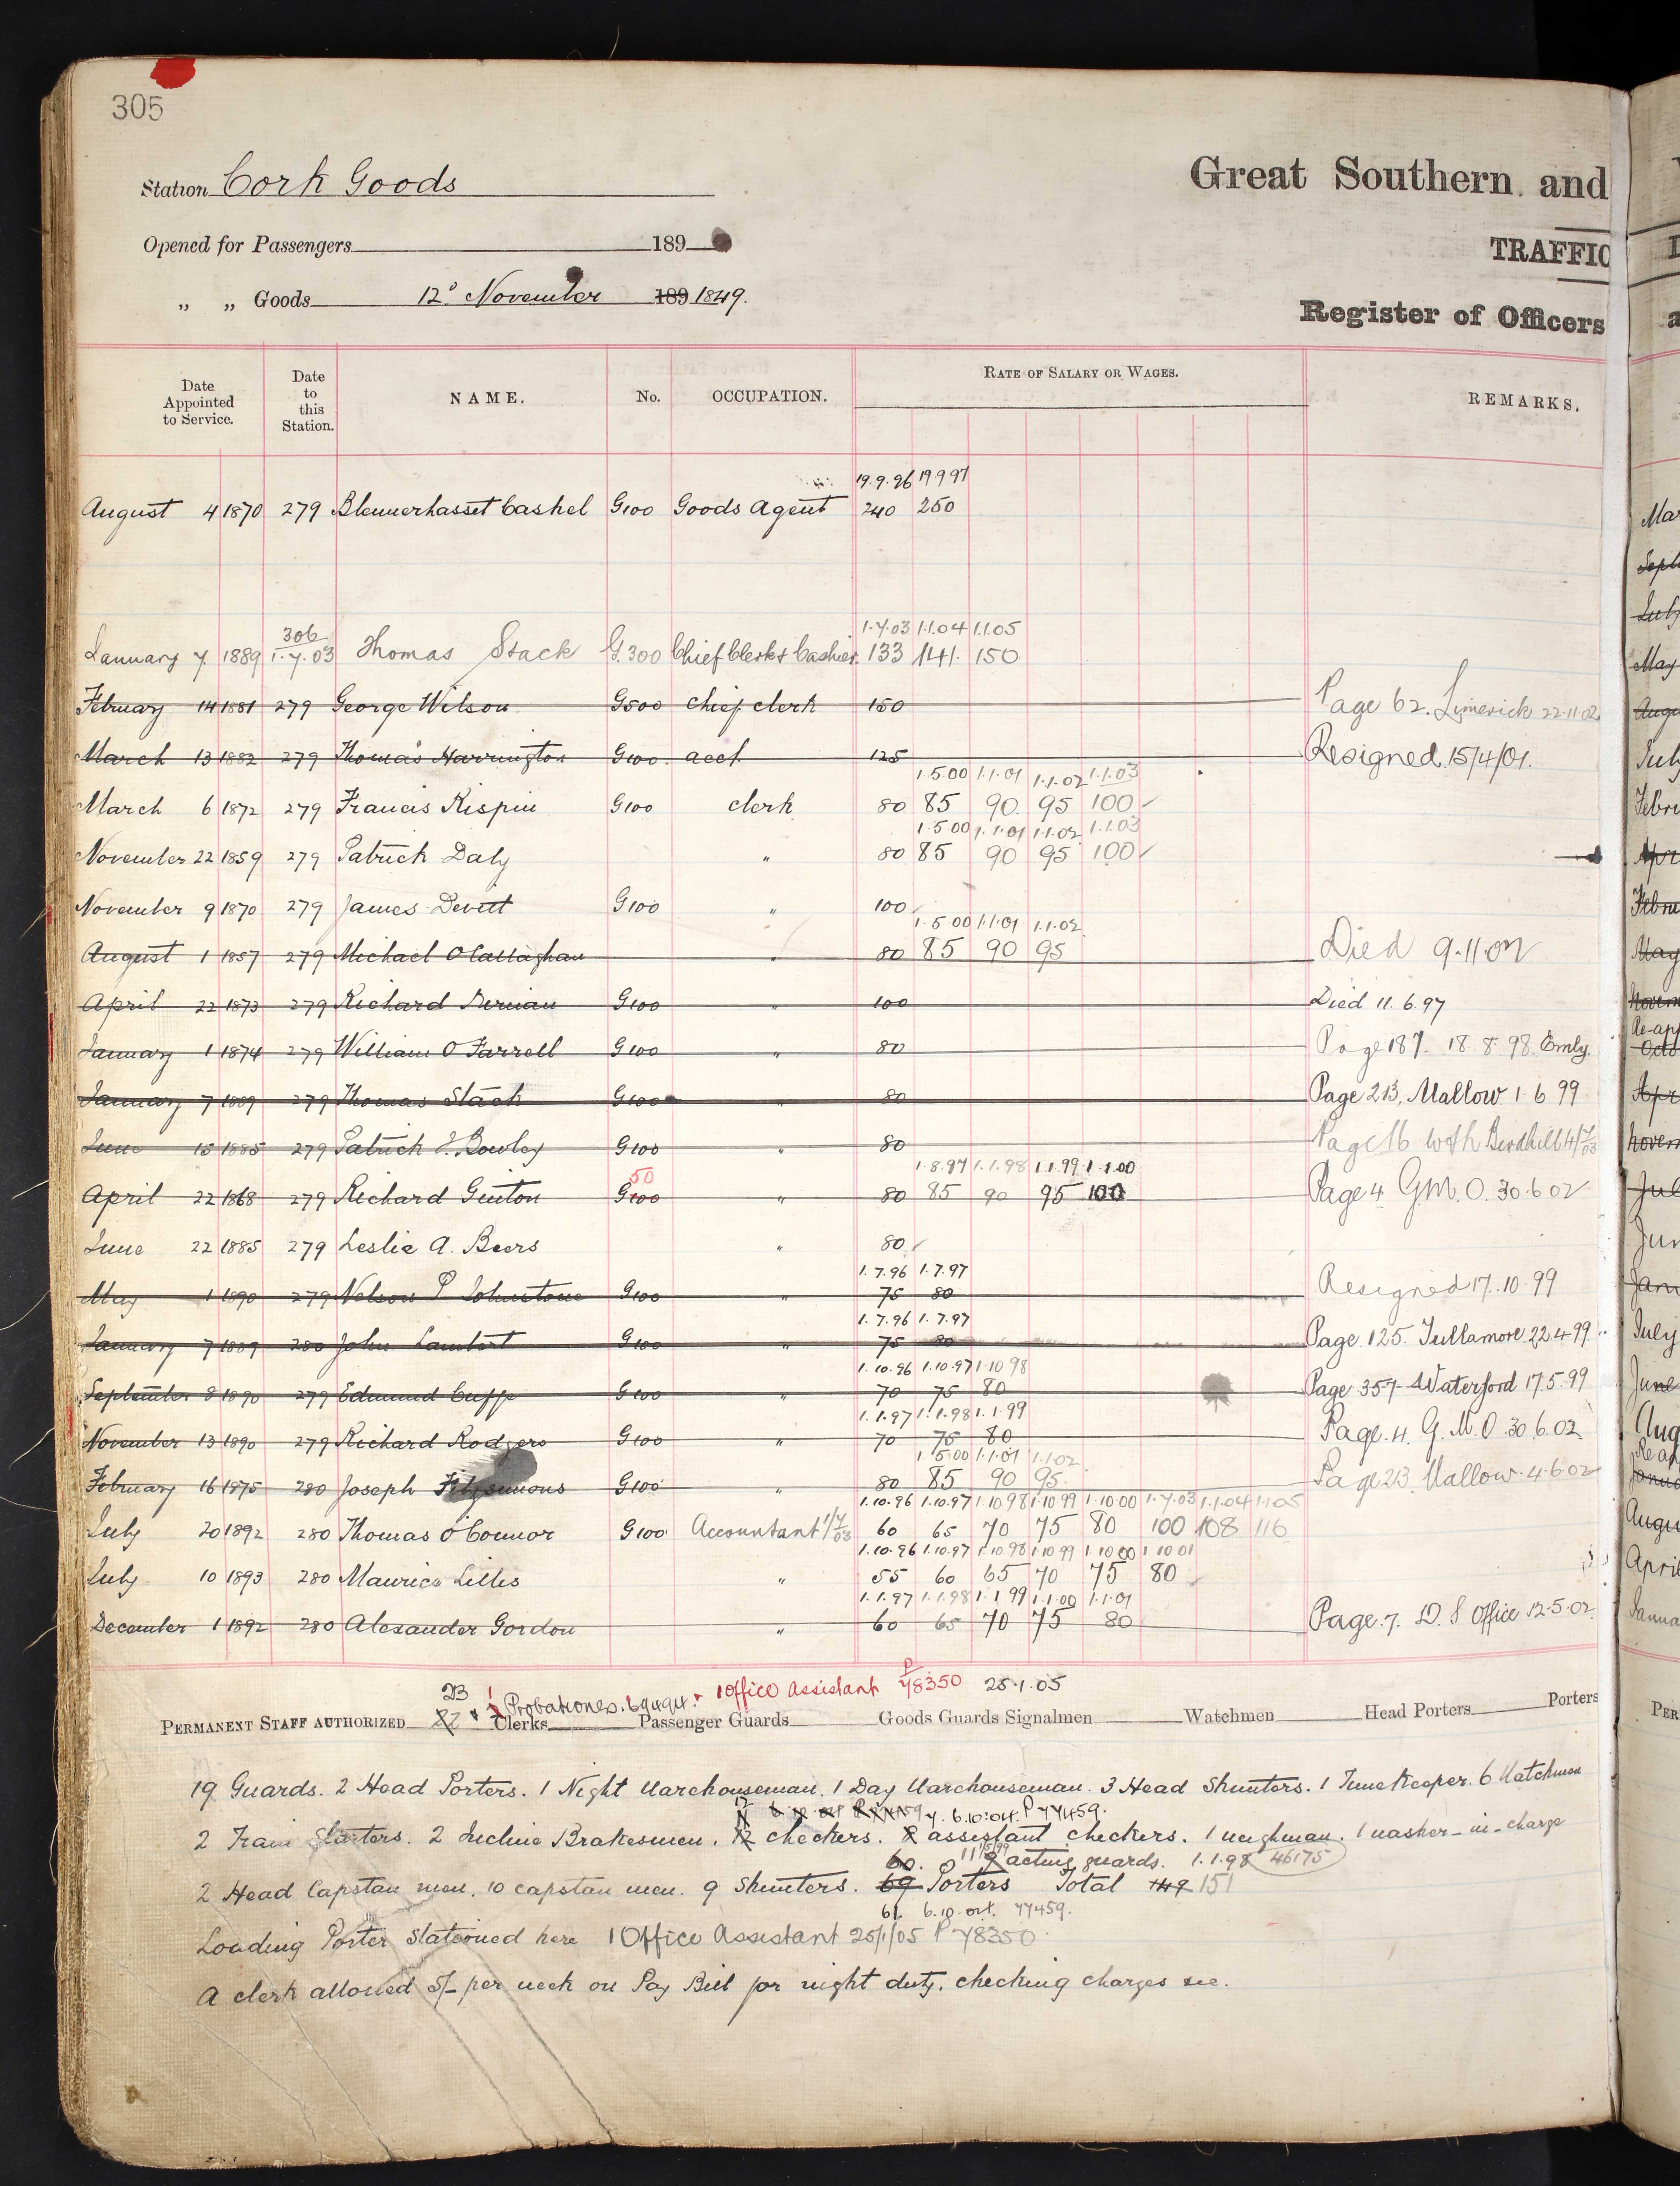 305
Station Cork Goods
Great Southern and
Opened for Passengers 189
TRAFFIC
„ „ Goods 12º November 189 1849.
Register of Officers
Date Appointed to Service. Date to this Station. NAME. No. OCCUPATION. RATE OF SALARY OR WAGES. REMARKS.
19.9.96 19 9 97
August 4 1870 279 Blennerhasset Cashel G100 Goods Agent 240 250
306 1.7.03 1.1.04 1.1.05
January 7 1889 1.7.03 Thomas Stack G.300 Chief Clerk & Cashier. 133 141. 150
February 14 1881 279 George Wilson G500 Chief clerk 150 Page 62. Limerick 22.11.02
March 13 1882 279 Thomas Harrington G100. acct. 125 Resigned 15/4/01.
1.5.00 1.1.01 1.1.02 1.1.03
March 6 1872 279 Francis Rispin G100 clerk 80 85 90 95 100
1.5.00 1.1.01 1.1.02 1.1.03
November 22 1859 279 Patrick Daly „ 80 85 90 95 100
November 9 1870 279 James Devitt G100 „ 100
1.5.00 1.1.01 1.1.02
August 1 1857 279 Michael O'Callaghan „ 80 85 90 95 Died 9.11.02
April 22 1873 279 Richard G100 „ 100 Died 11.6.97
January 1 1874 279 William O'Farrell G100 „ 80 Page 187. 18 8 98. Emly.
January 7 1889 279 Thomas Stack G100 „ 80 Page 213, Mallow 1 6 99
June 15 1885 279 Patrick J. Bowley G100 „ 80 Page 16 Birdhill 4/7/03
50 1.8.97 1.1.98 1.1.99 1.1.00
April 22 1868 279 Richard Ginton G100 „ 80 85 90 95 100 Page 4 G.M.O. 30.6.02
June 22 1885 279 Leslie A. Beers „ 80
1.7.96 1.7.97
May 1 1890 279 Nelson P Johnstone G100 „ 75 80 Resigned 17.10.99
1.7.96 1.7.97
January 7 1889 280 John Lambert G100 „ 75 80 Page 125. Tullamore 22.4.99
1.10.96 1.10.97 1 10 98
September 8 1890 279 Edmund Cuffe G100 „ 70 75 80 Page 357 Waterford 17.5.99
1.1.97 1.1.98 1.1.99
November 13 1890 279 Richard Rodgers G100 „ 70 75 80 Page.4. G.M.O. 30.6.02
1.5.00 1.1.01 1.1.02
February 16 1875 280 Joseph Fitzsimons G100 „ 80 85 90 95 Page 213 Mallow. 4.6.02
1.10.96 1.10.97 1 10 98 1 10 99 1 10 00 1.7.03 1.1.04 1.1.05
July 20 1892 280 Thomas O'Connor G100 Accountant 1/7/03 60 65 70 75 80 100 108 116
1.10.96 1.10.97 1 10 98 1 10 99 1 10 00 1 10 01
July 10 1893 280 Maurice Lillis „ 55 60 65 70 75 80
1.1.97 1.1.98 1.1.99 1.1.00 1.1.01
December 1 1892 280 Alexander Gordon „ 60 65 70 75 80 Page.7. D.S Office 12.5.02.
23 1 Probationer. 69494. + 1 Office Assistant P 78350 25.1.05
PERMANENT STAFF AUTHORIZED 22 Clerks Passenger Guards Goods Guards Signalmen Watchmen Head Porters Porters
19 Guards. 2 Head Porters. 1 Night Warehouseman. 1 Day Warehouseman. 3 Head Shunters. 1 Timekeeper. 6 Watchmen
12 7. 6.10.04. P 77459.
2 Train Starters. 2 Incline Brakesmen. 12 checkers. 8 assistant checkers. 1 weighman. 1 washer-in-charge
60. 11/5/99 2 acting guards. 1.1.98 46175
2 Head Capstan men. 10 capstan men. 9 Shunters. 69 Porters Total 149 151
61. 6.10.04. 77459.
Loading Porter Stationed here 1 Office Assistant 25/1/05 P 78350
A clerk allowed 5/- per week on Pay Bill for night duty, checking charges &c.